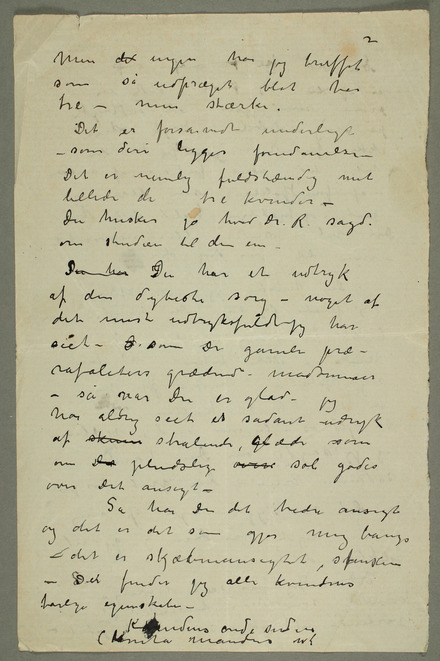 2
Men ~~det~~ ingen har jeg truffet
som så udpræget blot har
tre – men stærke.
Det er forsaavidt underligt
– som deri ligger
Det er nemlig fuldstændig mit
billede de tre kvinder –
Du husker jo hvad Dr. R. sagd.
om studien til den en –
~~Du har~~ Du har et udtryk
af den dybeste sorg – noget af
det mest udtryksfulde jeg har
seet – som de gamle præ-
rafaeliters grædende madonnaer
– så når Du er glad – jeg
har aldrig seet et sådant udtryk
af strålende glæde som
om pludselig sol gødes
over Det ansigt –
Så har du det tredie ansigt
og det er det som gjør mig bange
– det er skjæbneansigtet,
– Det finder jeg alle kvindens
farlige egenskaber –
Kvindens onde sider